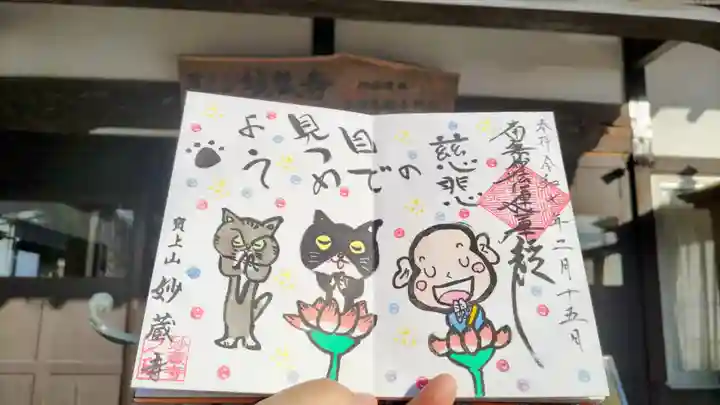 奉拝 令和七年十二月十五日
南無妙法蓮華経
慈悲
の
目で
見つめ
よう
寶上山
妙蔵寺
妙蔵寺